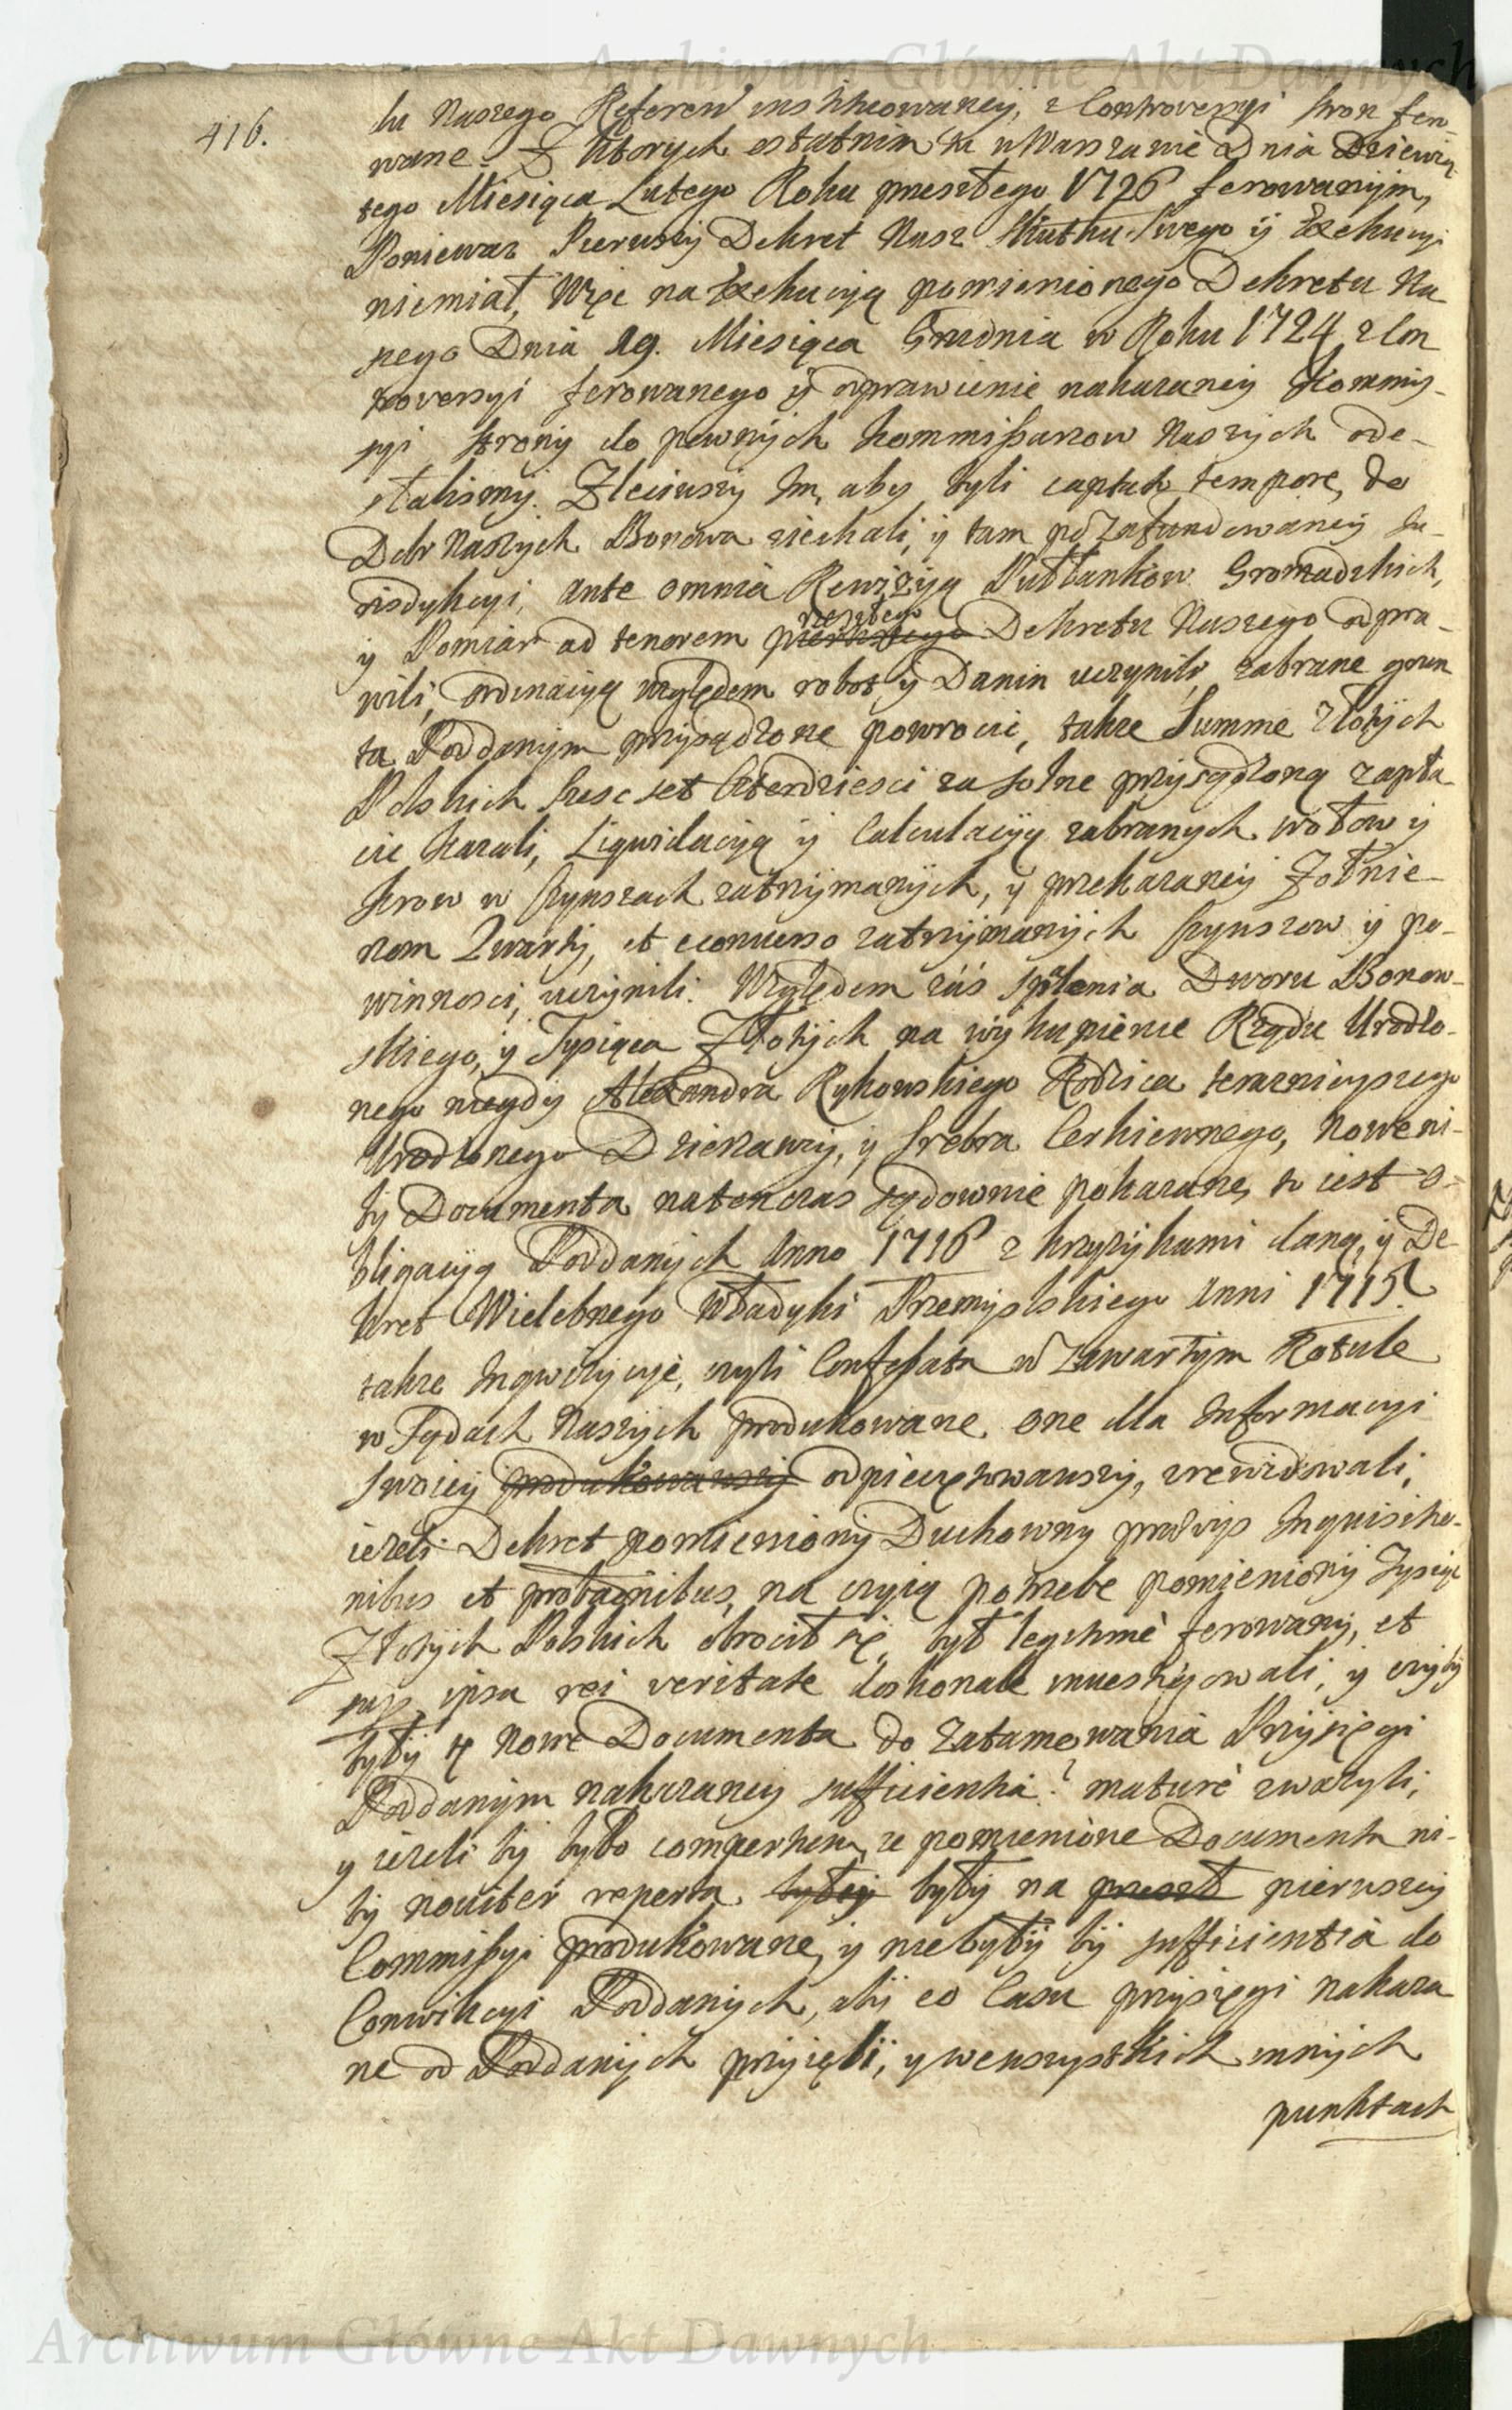 416.
du Naszego Referen instituowaney, z Controversyi stron fero-
wane. Z ktorych ostatnim tu w Warszawie Dnia Dziewią
tego Miesiąca Lutego Roku przeszłego 1726 ferowanym,
Poniewaz Pierwszy Dekret Nasz Skutku Swego y Exekucyi
niemiał, Więc na Exekucyą pomienionego Dekretu Na
szego Dnia 19. Miesiąca Grudnia w Roku 1724 z Con
troversyi ferowanego y odprawienie nakazaney Kommis-
syi strony do pewnych Kommissarzow Naszych ode-
słalismy. Zleciwszy Im, aby byli captato tempore, do
Dobr Naszych Bonowa ziechali, y tam po zafundowaney Ju-
risdykcyi, ante omnia Rewizyą Pułłankow Gromadzkich,
y Pomiar ad tenorem pierwszego przeszłego Dekretu Naszego odpra-
wili, ordinacyą względem robot y Danin uczynili, zabrane grun
ta Poddanym przysądzone powrocić, takze Summe Złotych
Polskich szesc set Czterdziesci za solne przysądzoną zapła
cic kazali, Liquidacyą y Calculacyą zabranych wołow y
krow w czynszach zatrzymanych, y przekazaney Zołnie-
rzom Zwarty, et econverso zatrzymanych czynszow y po-
winnosci, uczynili. Względem zaś spalenia Dworu Bonow-
skiego, y Tysiąca Złotych na wykupienie Rządu Urodzo-
nego niegdy Alexandra Rykowskiego Rodzica teraznieyszego
Urodzonego Dzierzawcy, y srebra Cerkiewnego, Noweni-
by Documenta natenczas sądownie pokazane, to iest O-
bligacyą Poddanych Anno 1716 z krzyzykami daną, y De-
kret Wielebnego Władyki Przemyslskiego Anni 1715.
takze Inqwizycye, czyli Confessata w zawartym Rotule
w Sądach Naszych produkowane, one dla Informacyi
swoiey produkowawszy odpieczętowawszy, zrewidowali,
iezeli Dekret pomieniony Duchowny praeviis Inquisitio-
nibus et probationibus, na czyią potrzebe pomieniony Tysiąc
Złotych Polskich obrocił się, był legitime ferowany, et
super ipsa rei veritate doskonale inwestygowali, y czyliby
były te nowe Documenta do zatamowania Przysięgi
Poddanym nakazaney sufficientia? mature zwazyli,
y iezeli by było compertum, ze pomienione Documenta ni-
by noviter reperta byłyy były na przeszł pierwszey
Commissyi produkowane, y niebyły by sufficientia do
Conwikcyi Poddanych, aby eo Casu przysięgi nakaza
ne od Poddanych przyięli, y wewszystkich innych
punktach